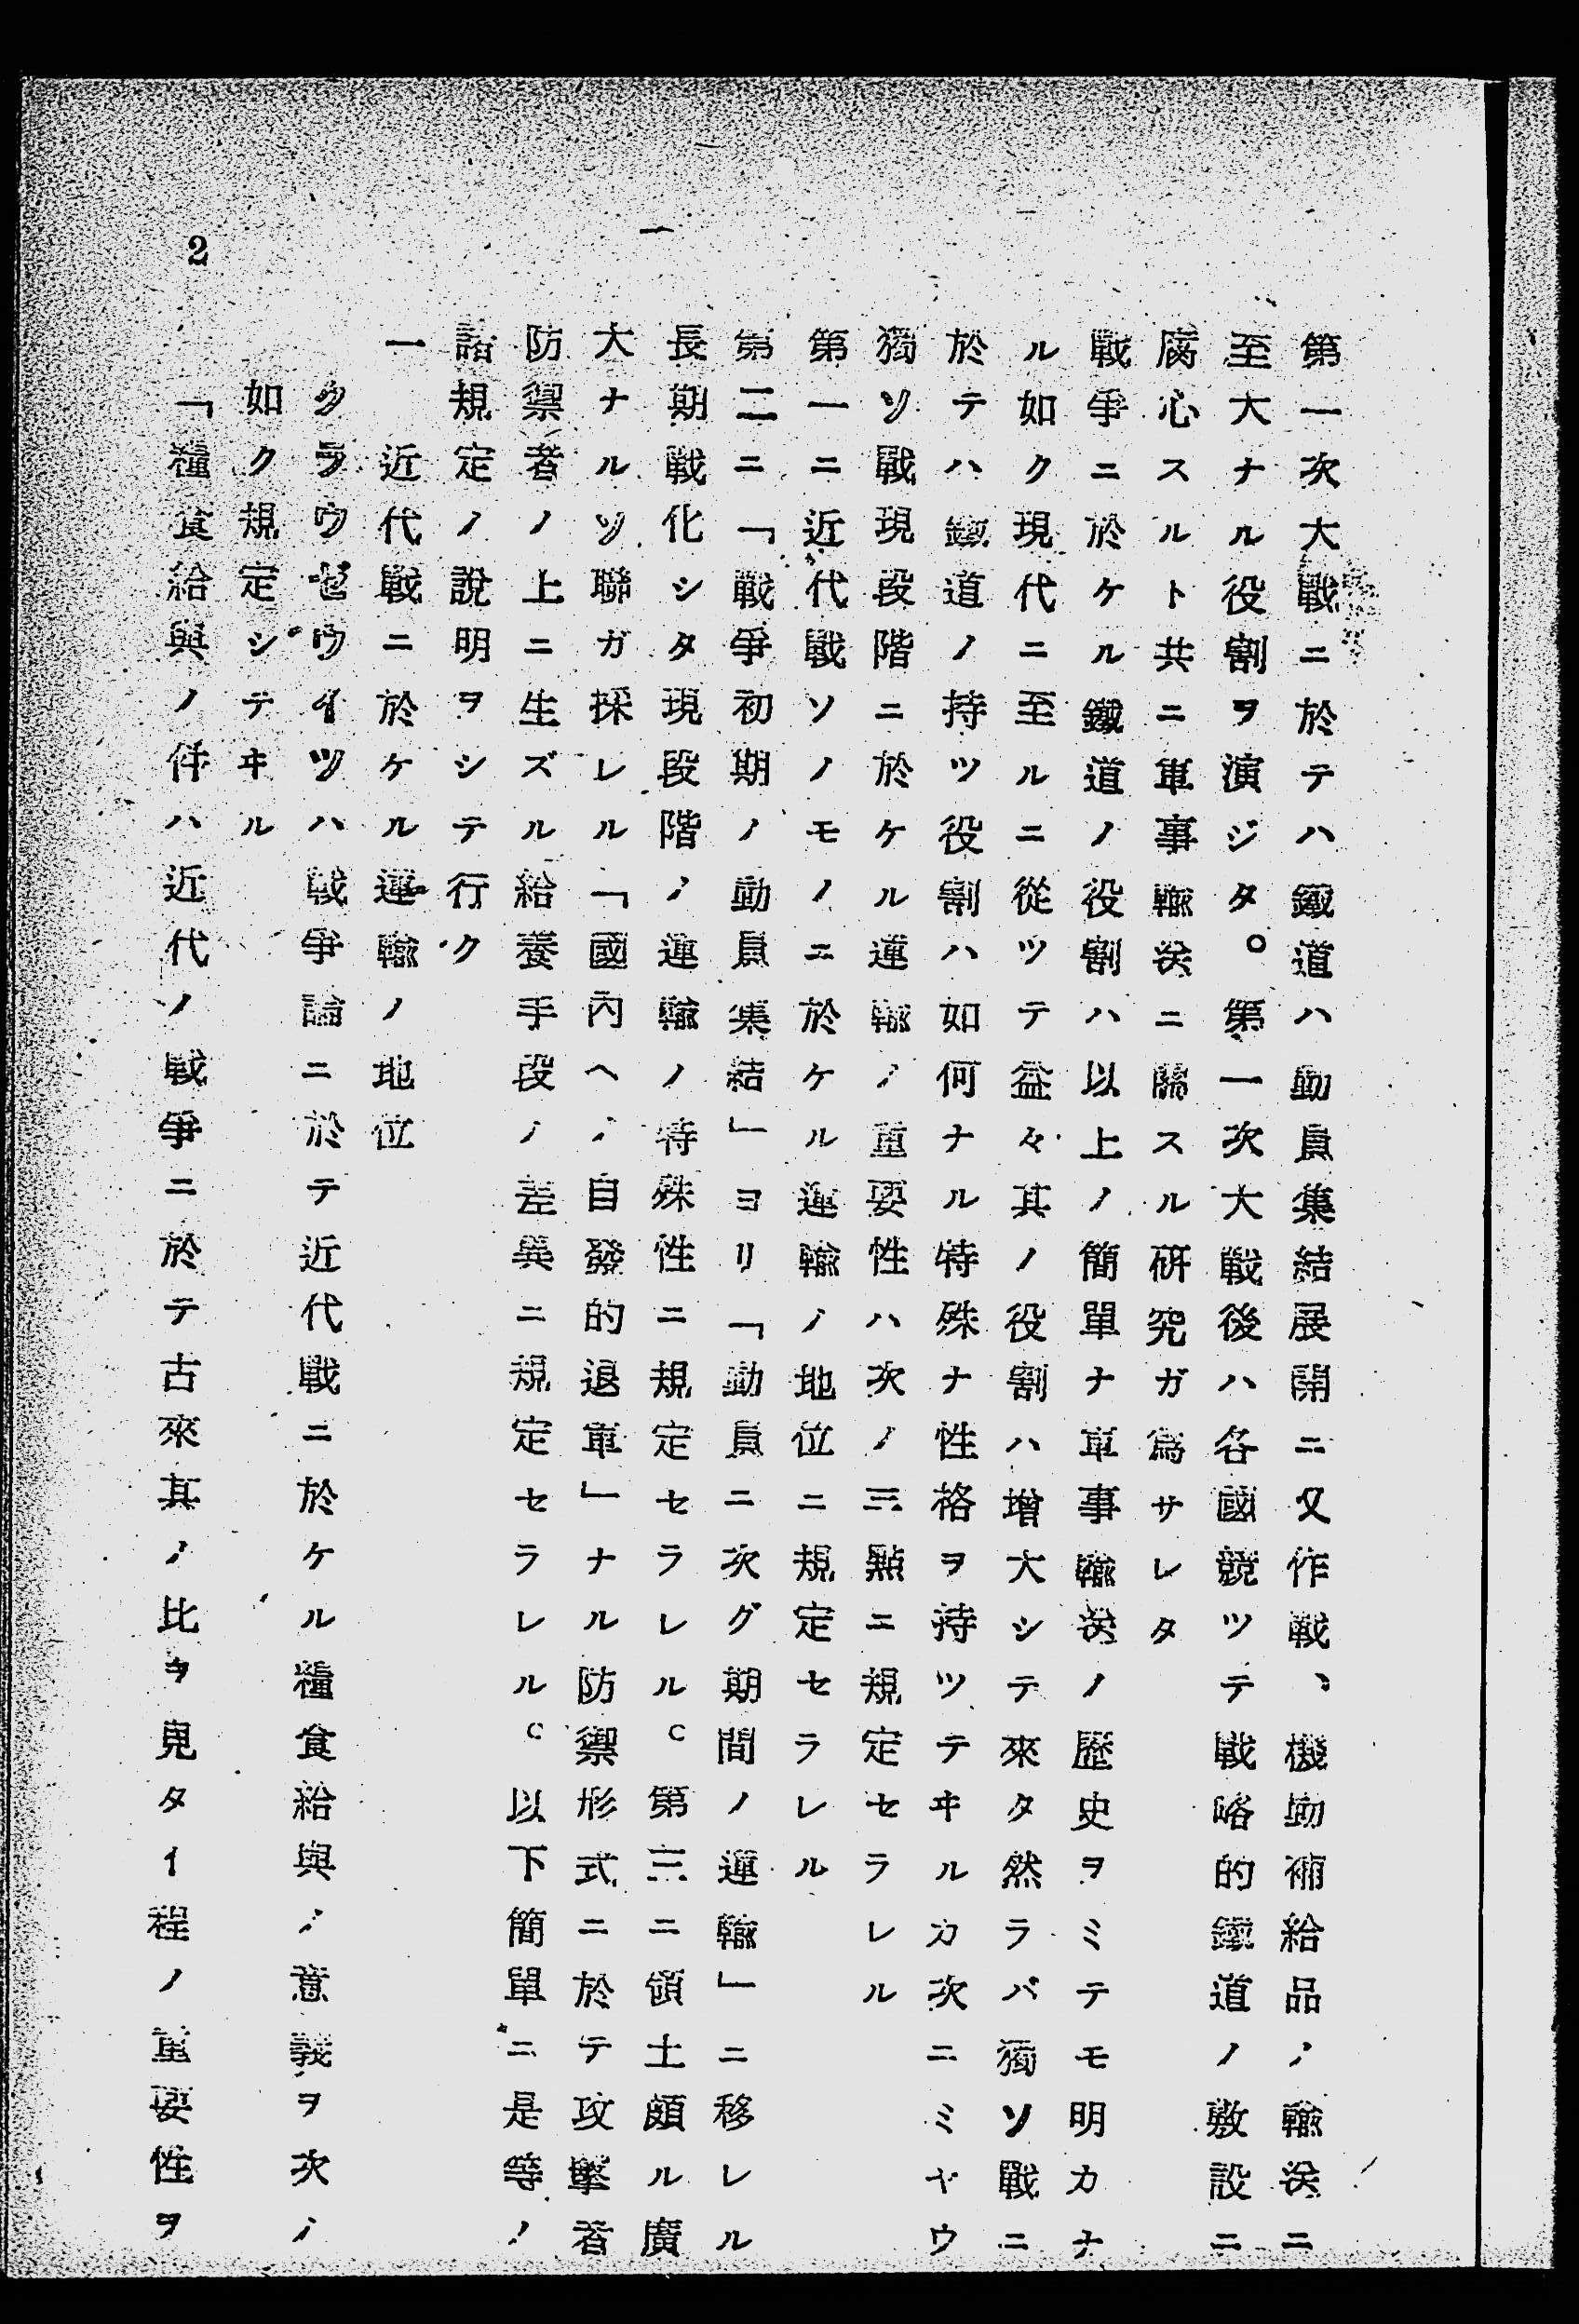 第一次大戰ニ於テハ鐵道ハ動員集結展開ニ又作戰、機動補給品ノ輸送ニ
至大ナル役割ヲ演ジタ。第一次大戰後ハ各國競ツテ戰略的鐵道ノ敷設ニ
腐心スルト共ニ軍事輸送ニ關スル研究ガ爲サレタ
戰爭ニ於ケル鐵道ノ役割ハ以上ノ簡單ナ軍事輸送ノ歷史ヲミテモ明カナ
ル如ク現代ニ至ルニ從ツテ益々其ノ役割ハ增大シテ來タ然ラバ獨ソ戰ニ
於テハ鐵道ノ持ツ役割ハ如何ナル特殊ナ性格ヲ持ツテヰルカ次ニミヤウ
獨ソ戰現段階ニ於ケル運輸ノ重要性ハ次ノ三點ニ規定セラレル
第一ニ近代戰ソノモノニ於ケル運輸ノ地位ニ規定セラレル
第二ニ「戰爭初期ノ動員集結」ヨリ「動員ニ次グ期間ノ運輸」ニ移レル
長期戰化シタ現段階ノ運輸ノ特殊性ニ規定セラレル。第三ニ領土頗ル廣
大ナルソ聯ガ採レル「國內ヘノ自發的退軍」ナル防禦形式ニ於テ攻擊者
防禦者ノ上ニ生ズル給養手段ノ差異ニ規定セラレル。以下簡單ニ是等ノ
諸規定ノ說明ヲシテ行ク
一 近代戰ニ於ケル運輸ノ地位
クラウゼウイツハ戰爭論ニ於テ近代戰ニ於ケル糧食給與ノ意義ヲ次ノ
如ク規定シテヰル
「糧食給與ノ件ハ近代ノ戰爭ニ於テ古來其ノ比ヲ見タイ程ノ重要性ヲ
2